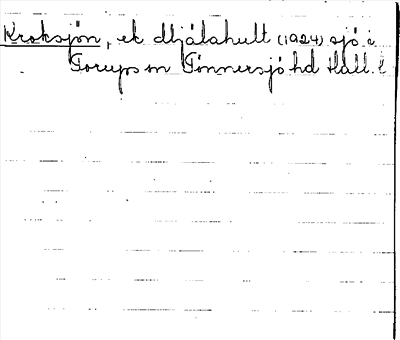 Kroksjön, ek Mjälahult (1924) sjö i
Torups sn Tönnersjö hd Hall. l